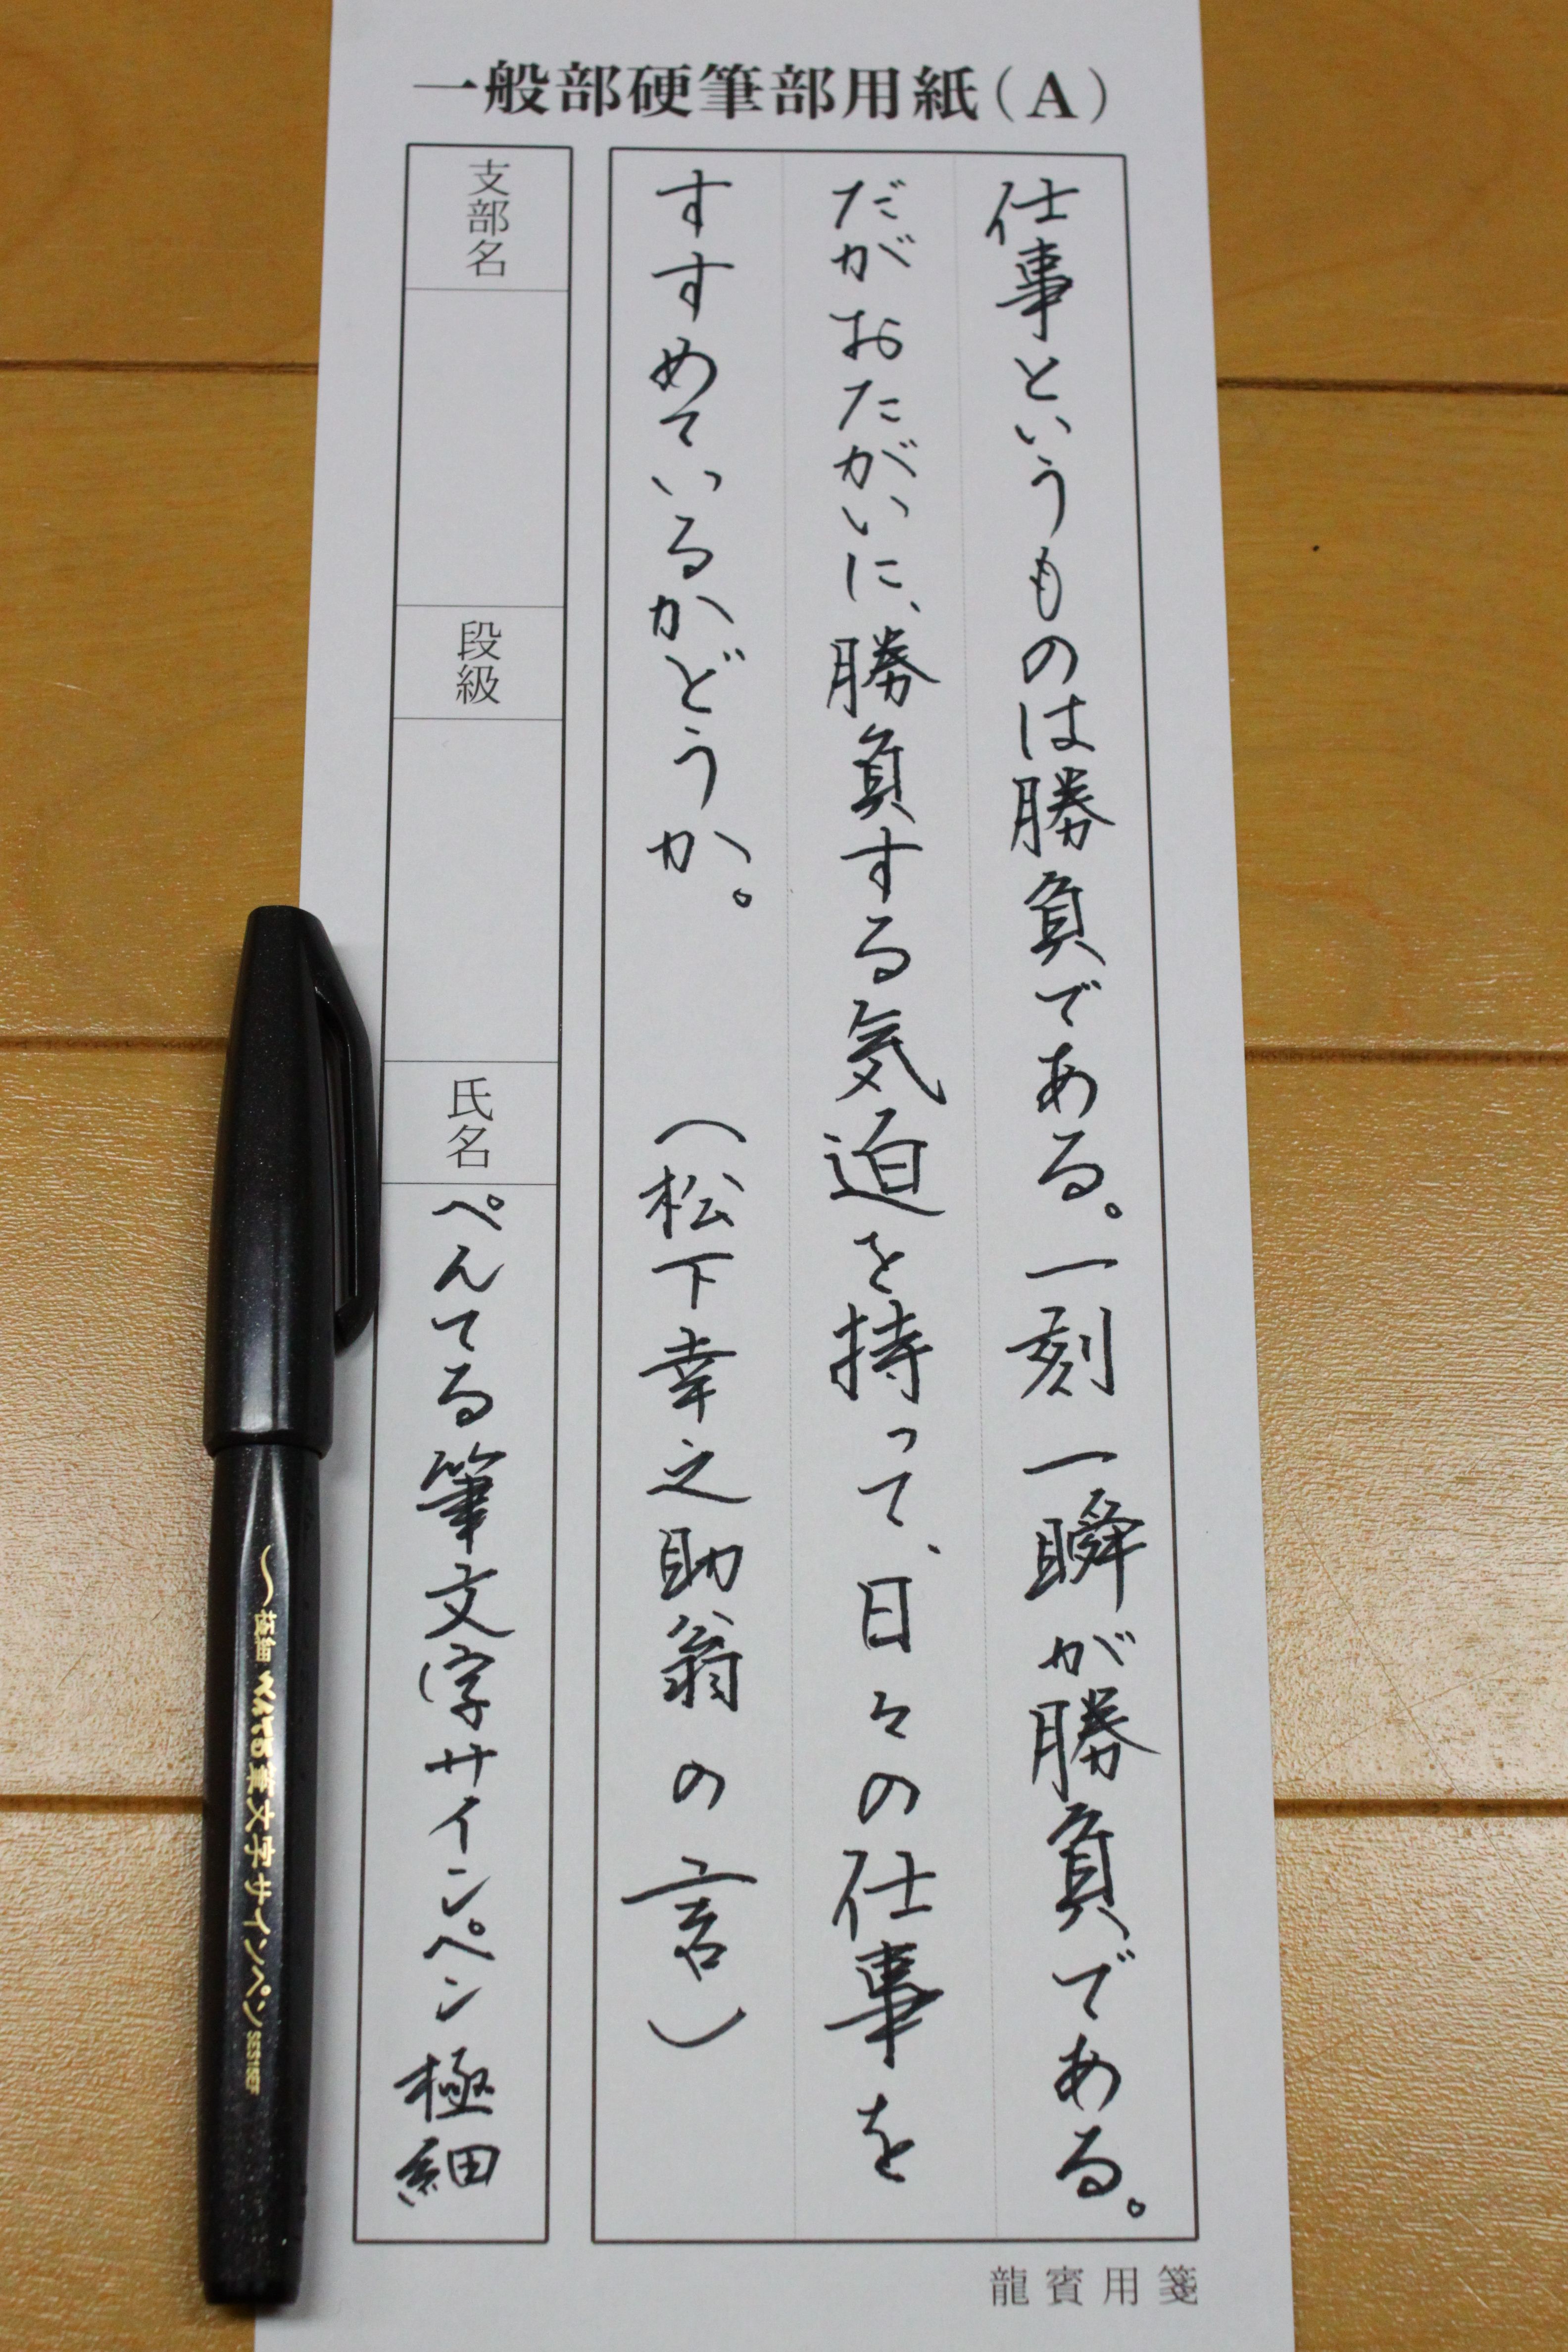 一般部硬筆部用紙(A)
仕事というものは勝負である。一刻一瞬が勝負である。
だがおたがいに、勝負する気迫を持って、日々の仕事を
すすめているかどうか。 (松下幸之助翁の言)
支部名
段級
氏名 ぺんてる筆文字サインペン 極細
龍賓用箋
極細 ぺんてる筆文字サインペン SES15EF